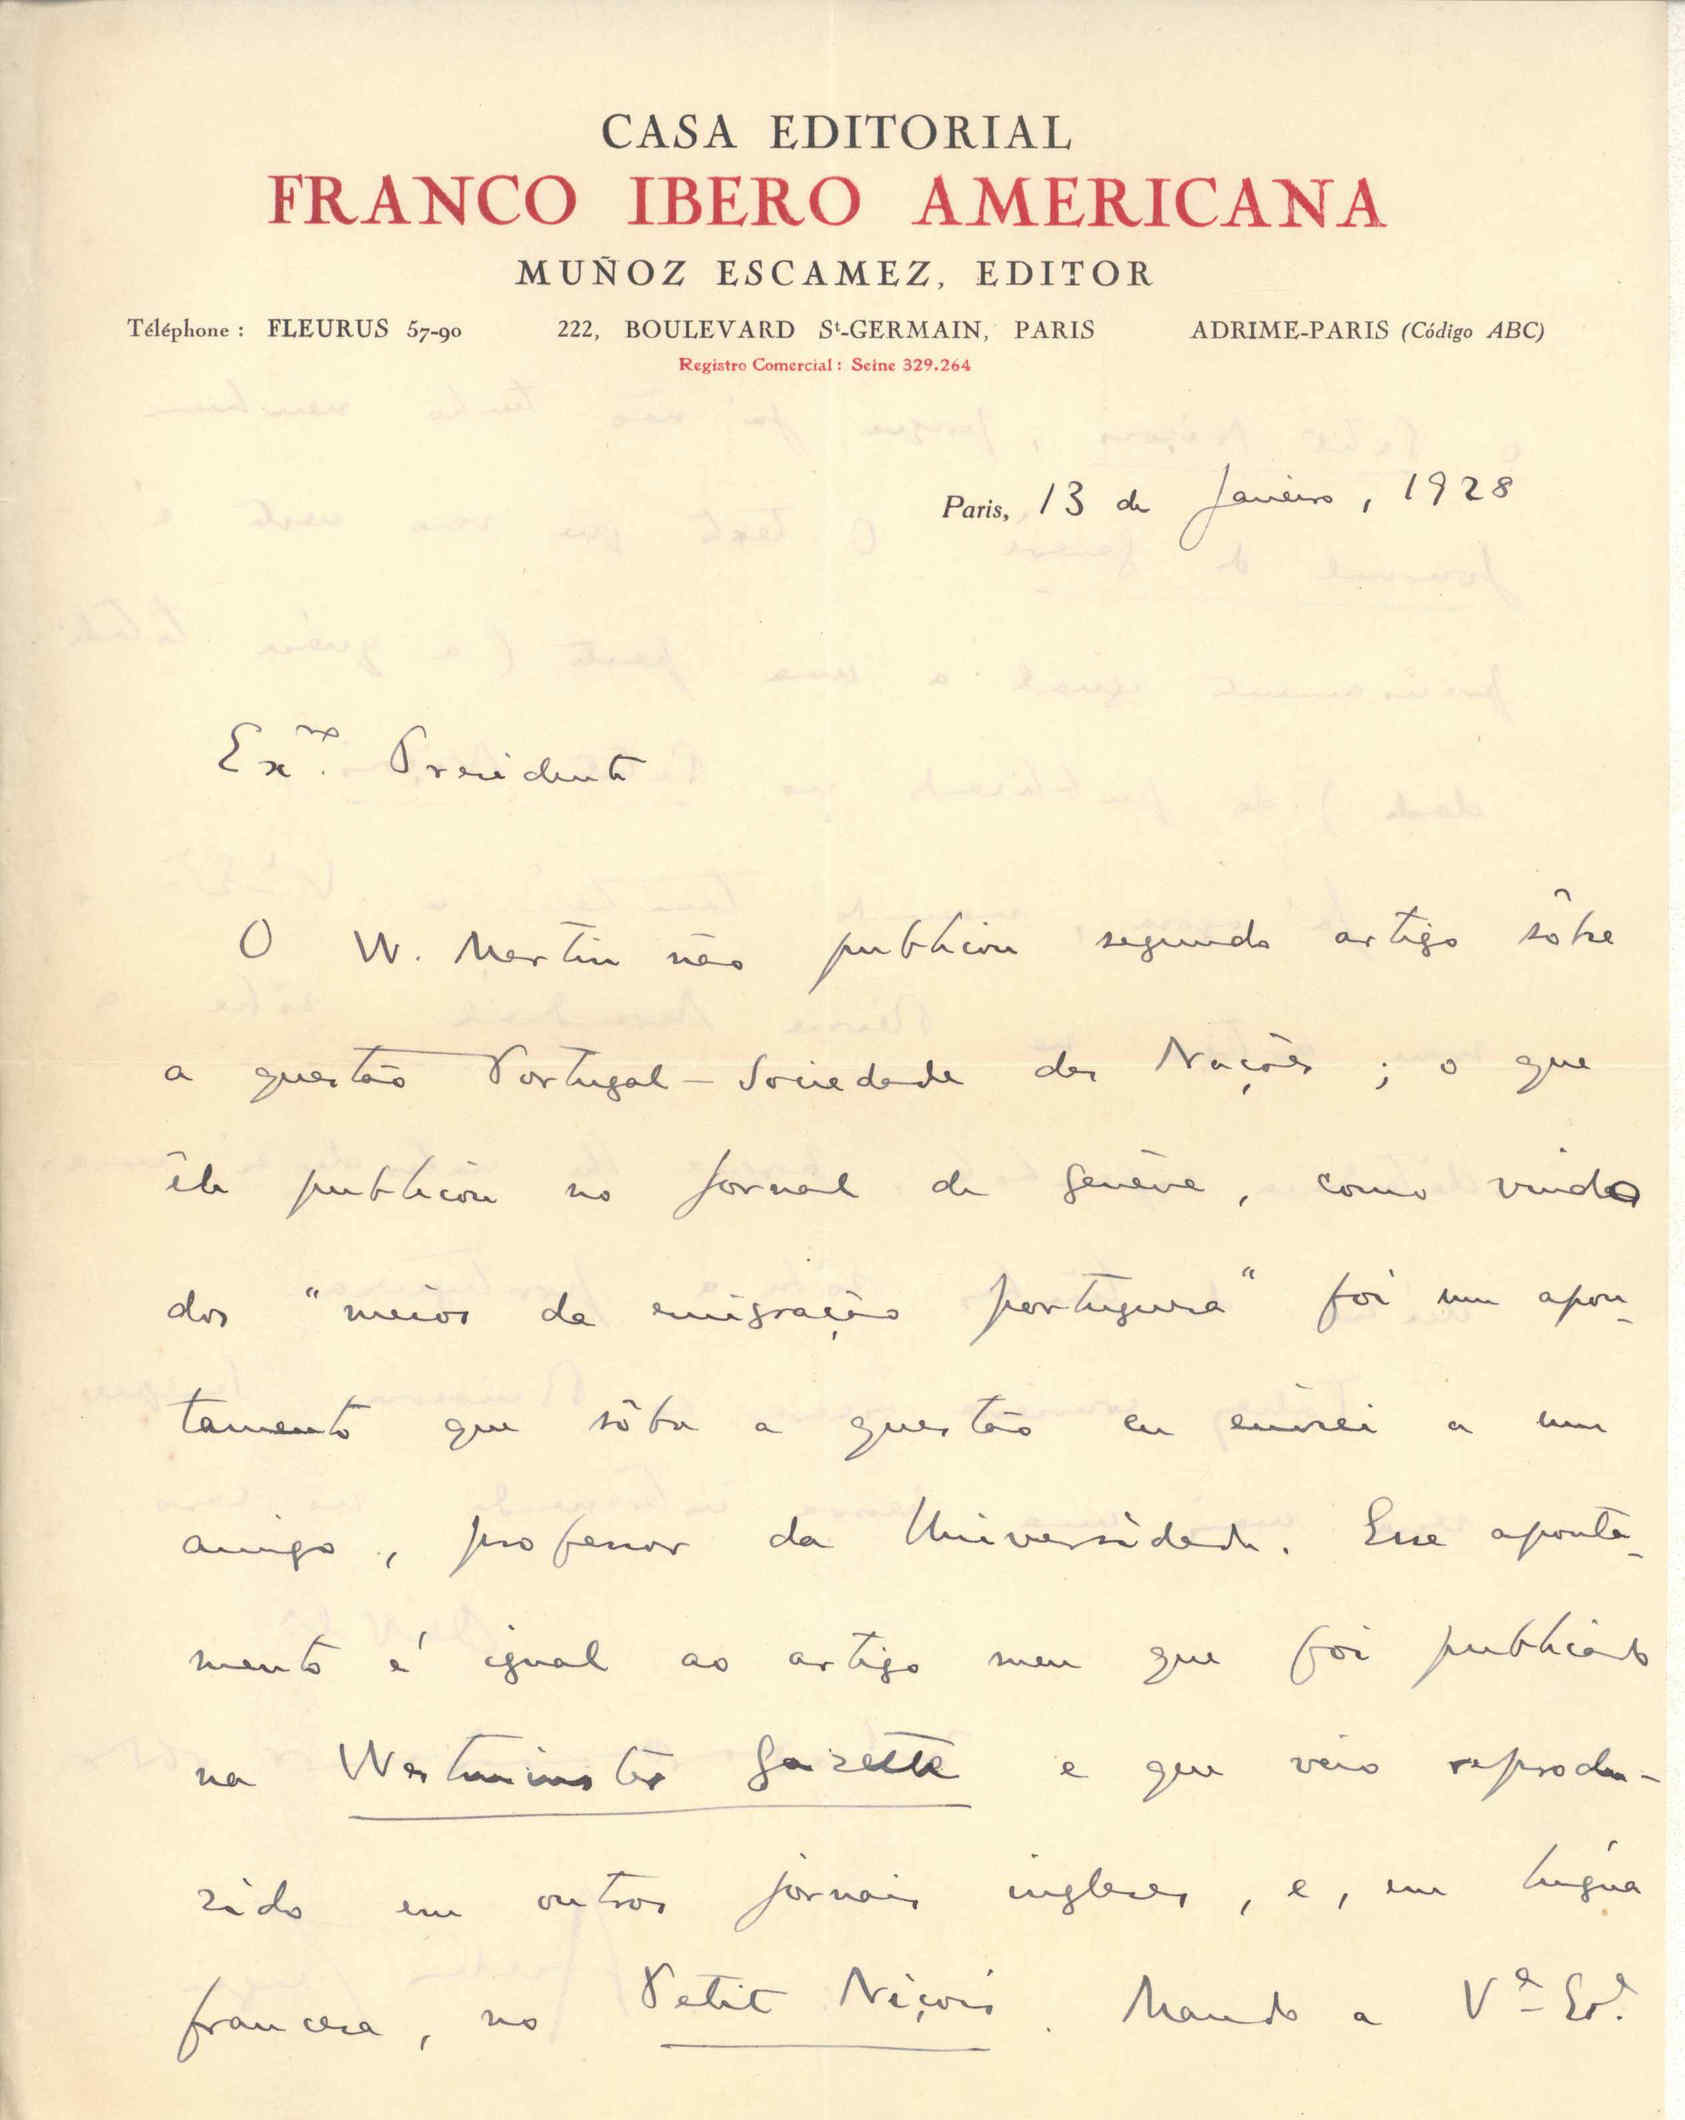 CASA EDITORIAL
FRANCO IBERO AMERICANA
MUÑOZ ESCAMEZ, EDITOR
Téléphone : FLEURUS 57-90 222, BOULEVARD St-GERMAIN, PARIS ADRIME-PARIS (Código ABC)
Registro Comercial : Seine 329.264
Paris, 13 de Janeiro, 1928
Exmo. Presidente
O W. Martin não publicou segundo artigo sôbre
a questão Portugal-Sociedade das Nações ; o que
êle publicou no Jornal de Genève, como vindo
dos "meios da emigração portuguesa" foi um apon-
tamento que sôbre a questão eu enviei a um
amigo, professor da Universidade. Esse aponta-
mento é igual ao artigo meu que foi publicado
na Westminster Gazette e que veio reprodu-
zido em outros jornais ingleses, e, em língua
francesa, no Petit Niçois. Mando a Vª Exª.